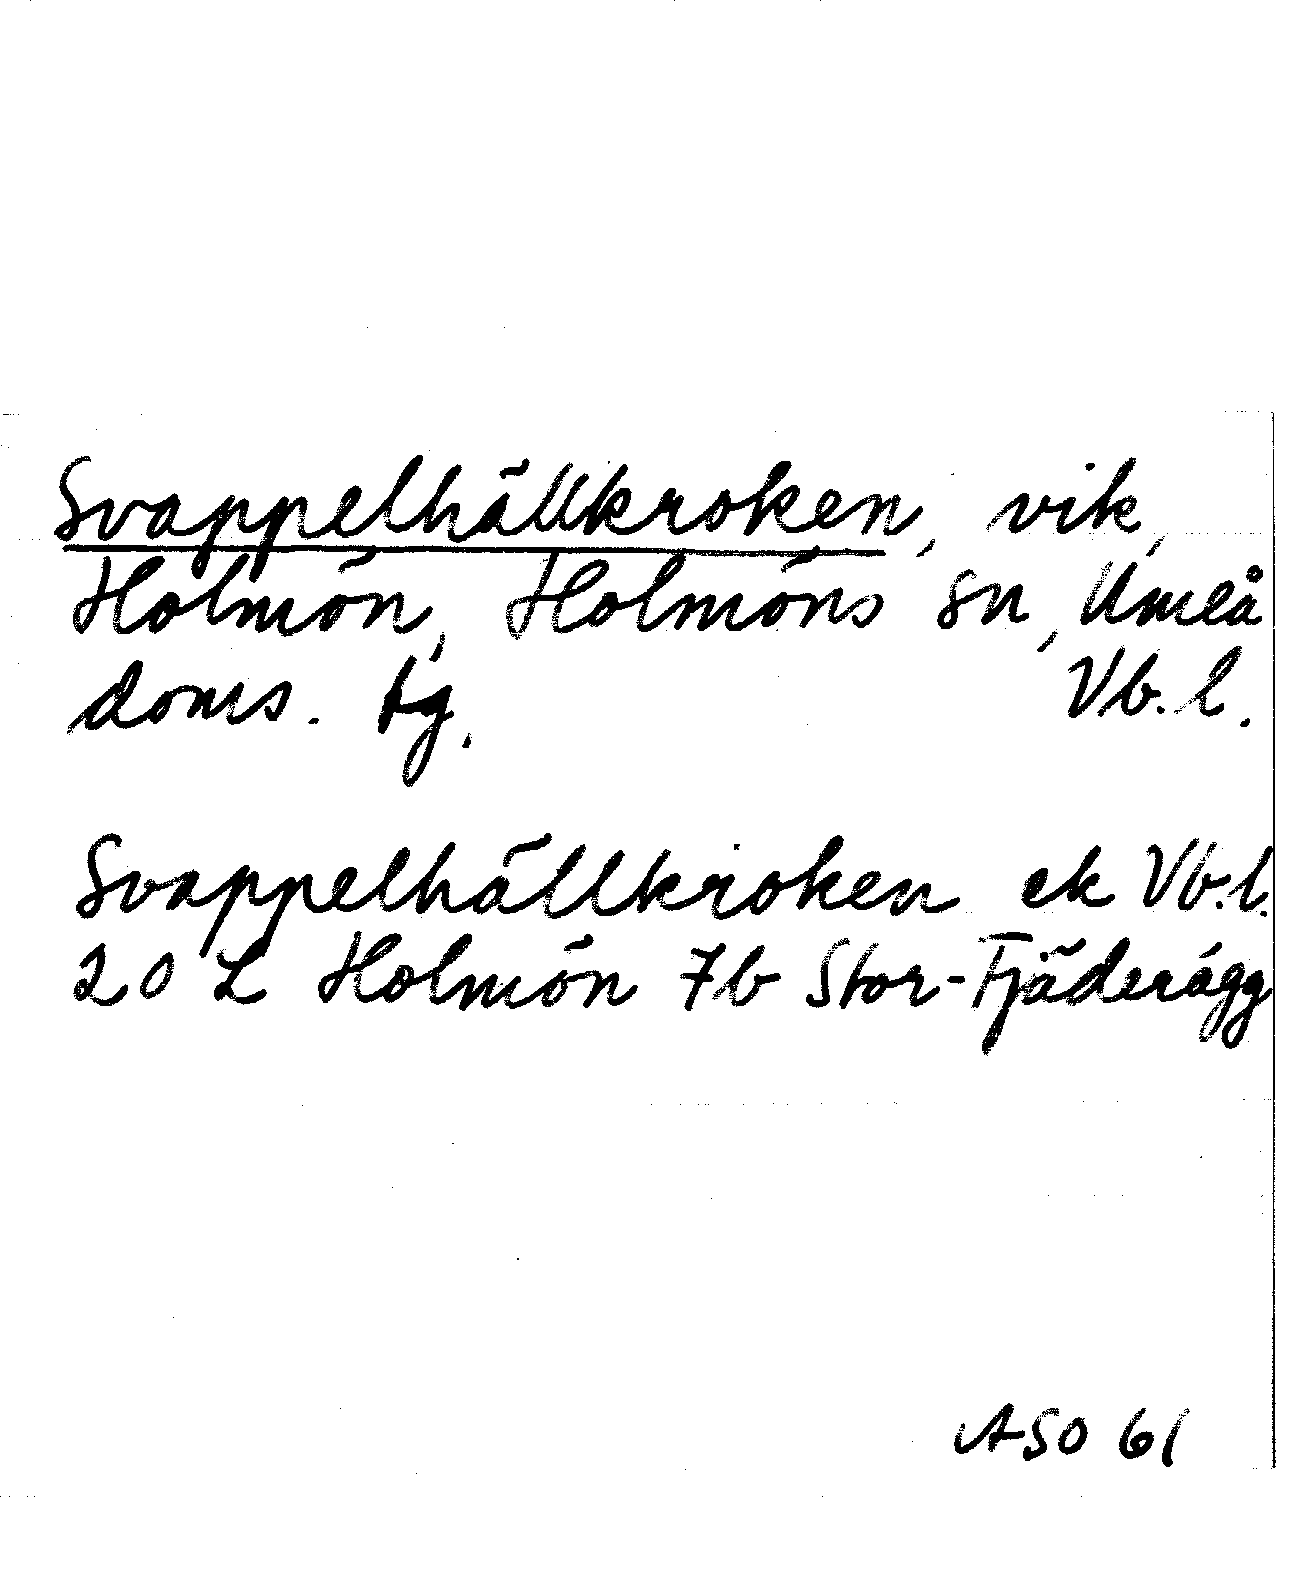 Svappelhällkroken, vik,
Holmön, Holmöns sn, Umeå
doms. tg. Vb. l.
Svappelhällkroken ek Vb.l.
20 L Holmön 7b Stor-Fjäderägg
ASO 61